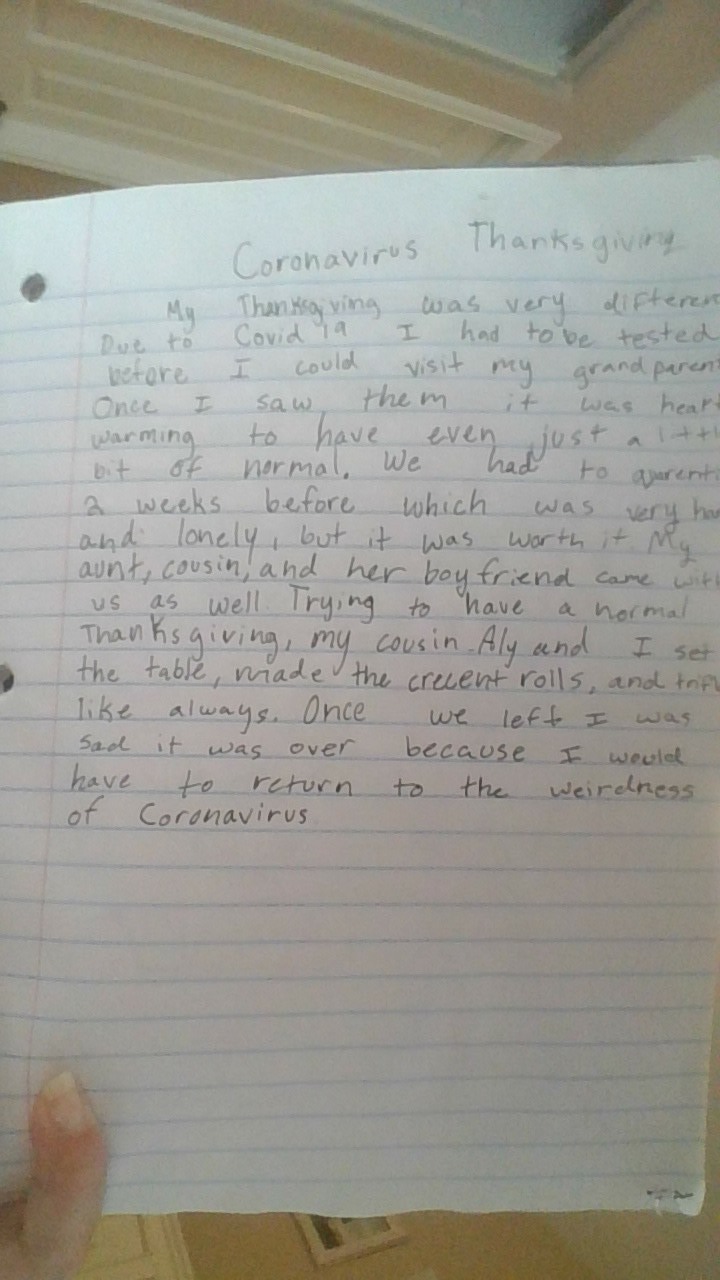 Coronavirus Thanksgiving
My Thanksgiving was very differen
Due to Covid 19 I had to be tested
before I could visit my grandparen
Once I saw them it was heart
warming to have even just a littl
bit of normal. We had to
2 weeks before which was very har
and lonely, but it was worth it. My
aunt, cousin, and her boyfriend came with
us as well. Trying to have a normal
Thanksgiving, my cousin Aly and I set
the table, made the crecent rolls, and
like always. Once we left I was
sad it was over because I would
have to return to the weirdness
of Coronavirus